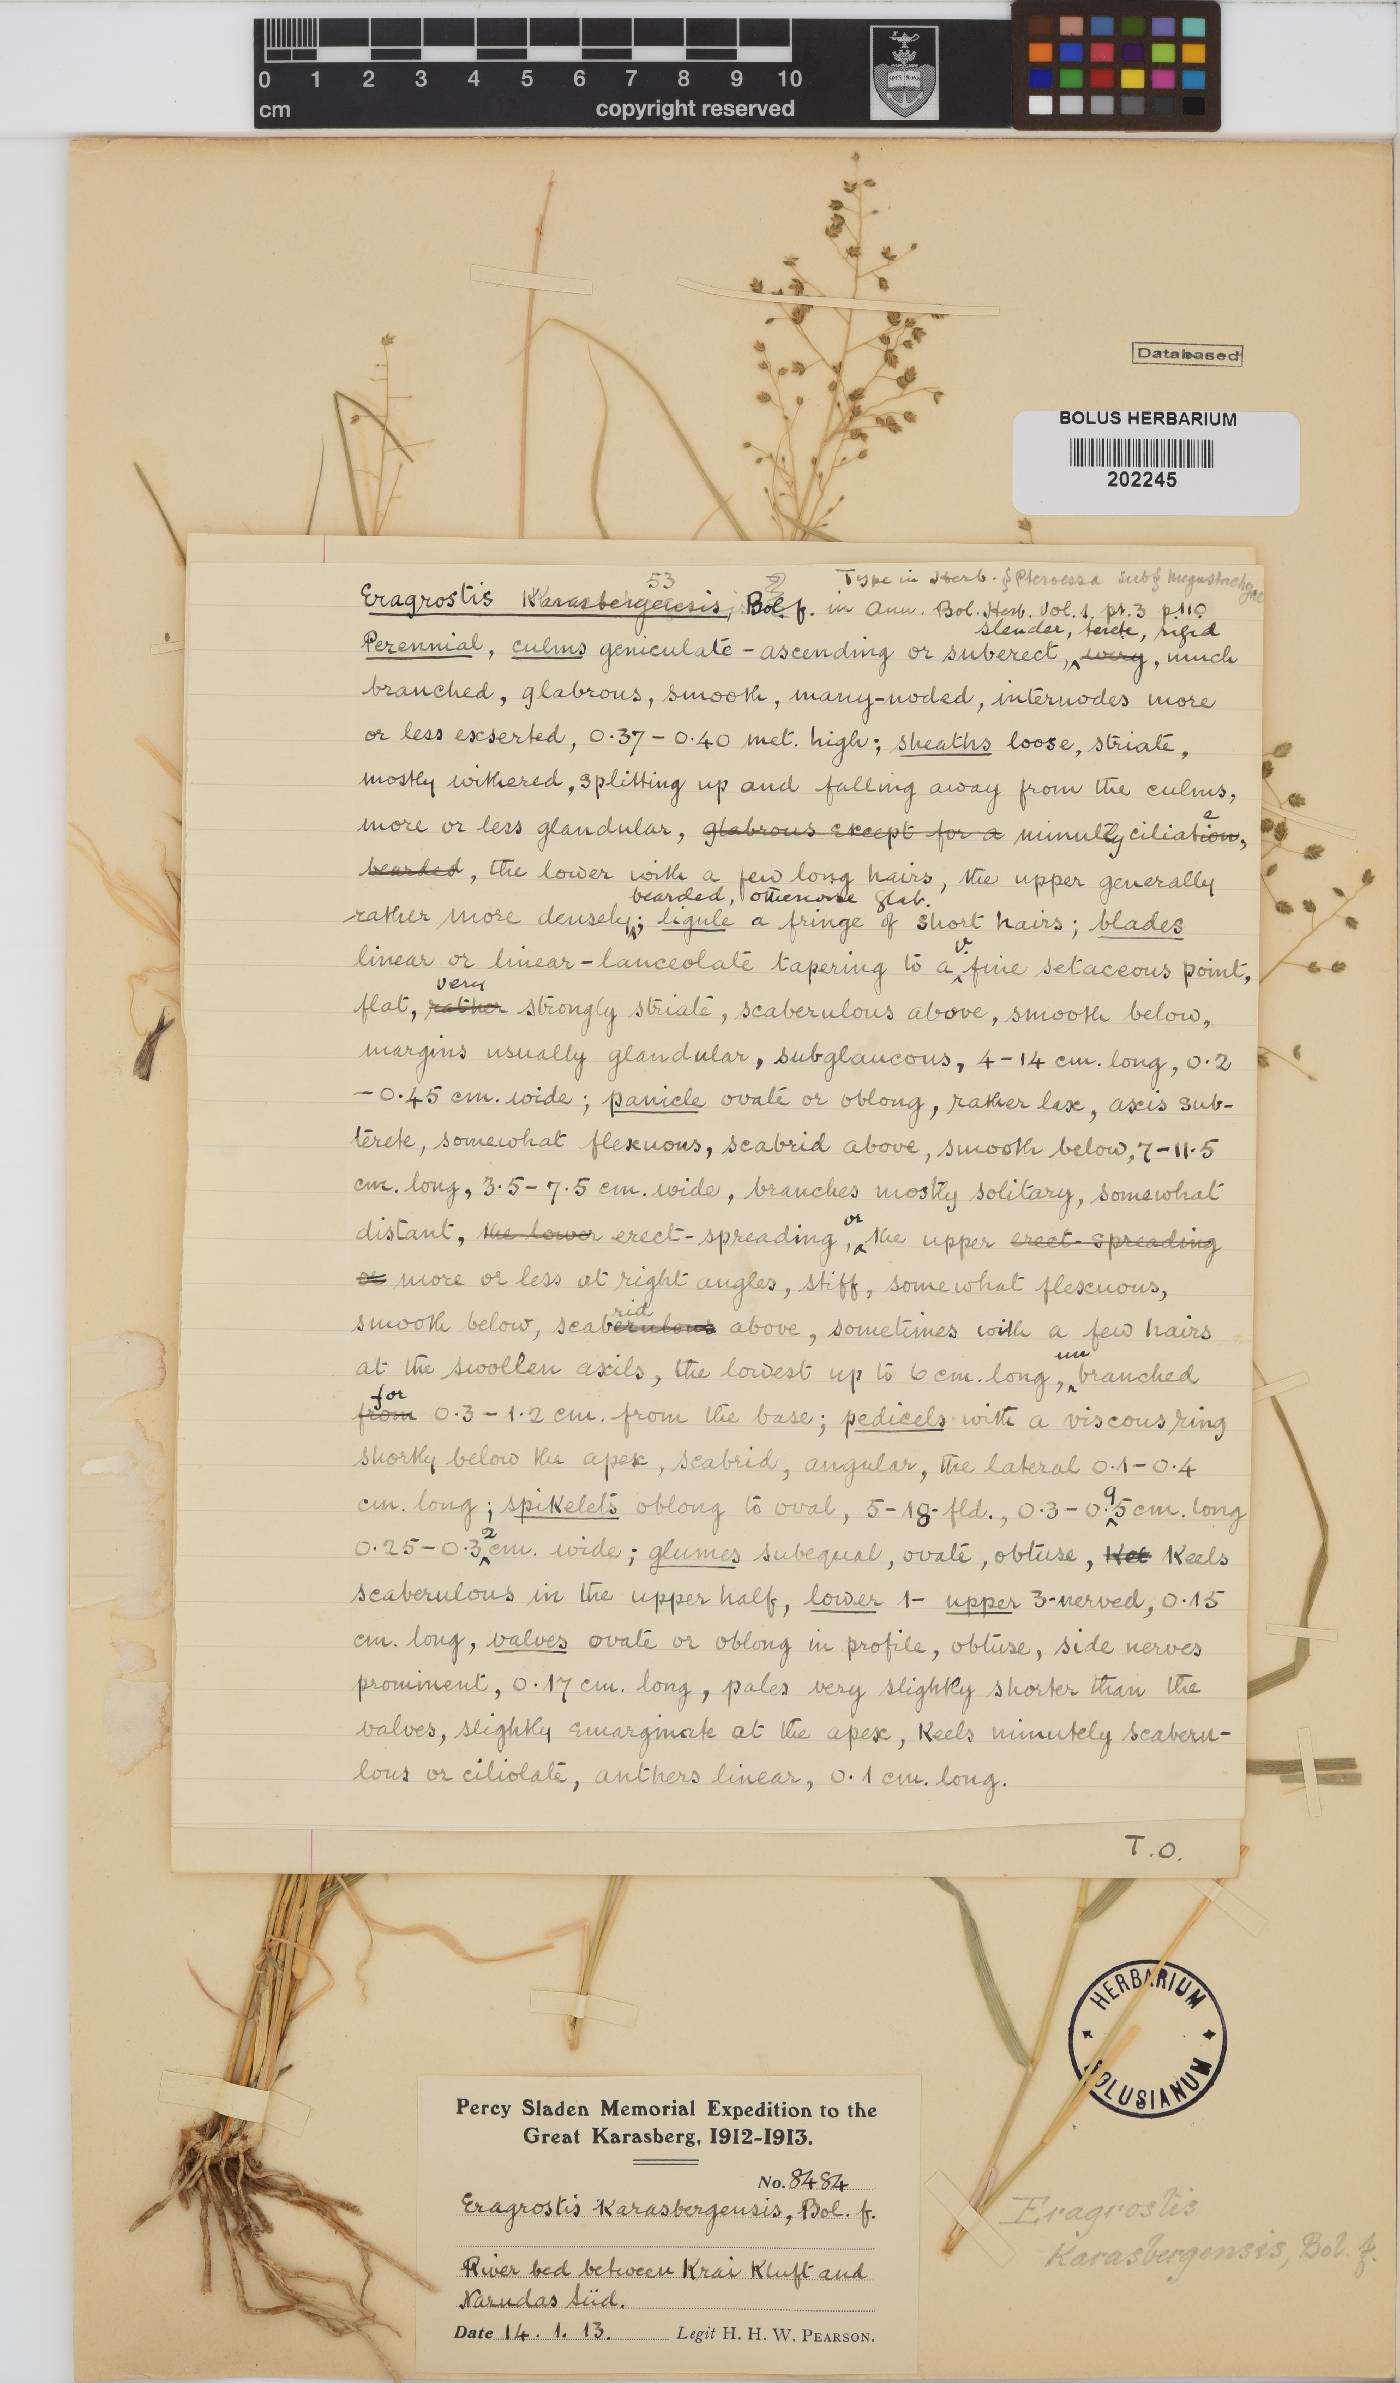 0 1 2 3 4 5 6 7 8 9 10
cm copyright reserved
Databased
BOLUS HERBARIUM
202245
53
Type in Herb. § Pteroessa sub§ Megastachyae
Eragrostis Karasbergensis, Bol. f. in Ann. Bol. Herb. Vol. 1. pt. 3 p 110
slender, terete, rigid
Perennial, culms geniculate-ascending or suberect, wiry, much
branched, glabrous, smooth, many-noded, internodes more
or less exserted, 0.37-0.40 met. high; sheaths loose, striate,
mostly withered, splitting up and falling away from the culms,
more or less glandular, glabrous except for a minutely ciliation,
bearded, the lower with a few long hairs, the upper generally
bearded, otherwise glab.
rather more densely; ligule a fringe of short hairs; blades
v.
linear or linear-lanceolate tapering to a fine setaceous point,
very
flat, rather strongly striate, scaberulous above, smooth below,
margins usually glandular, subglaucous, 4-14 cm. long, 0.2
-0.45 cm. wide; panicle ovate or oblong, rather lax, axis sub-
terete, somewhat flexuous, scabrid above, smooth below, 7-11.5
cm. long, 3.5-7.5 cm. wide, branches mostly solitary, somewhat
or
distant, the lower erect-spreading, the upper erect-spreading
or more or less at right angles, stiff, somewhat flexuous,
rid
smooth below, scaberulous above, sometimes with a few hairs
un
at the swollen axils, the lowest up to 6 cm. long, branched
for
from 0.3-1.2 cm. from the base; pedicels with a viscous ring
shortly below the apex, scabrid, angular, the lateral 0.1-0.4
9
cm. long; spikelets oblong to oval, 5-18-fld., 0.3-0.5 cm. long
2
0.25-0.3 cm. wide; glumes subequal, ovate, obtuse, Kee Keels
scaberulous in the upper half, lower 1- upper 3-nerved, 0.15
cm. long, valves ovate or oblong in profile, obtuse, side nerves
prominent, 0.17 cm. long, pales very slightly shorter than the
valves, slightly emarginate at the apex, Keels minutely scaberu-
lous or ciliolate, anthers linear, 0.1 cm. long.
T.O.
HERBARIUM
BOLUSIANUM
Percy Sladen Memorial Expedition to the
Great Karasberg, 1912-1913.
No. 8484
Eragrostis Karasbergensis, Bol. f.
River bed between Krai Kluft and
Narudas Süd.
Date 14. 1. 13. Legit H. H. W. PEARSON.
Eragrostis
Karasbergensis, Bol. f.